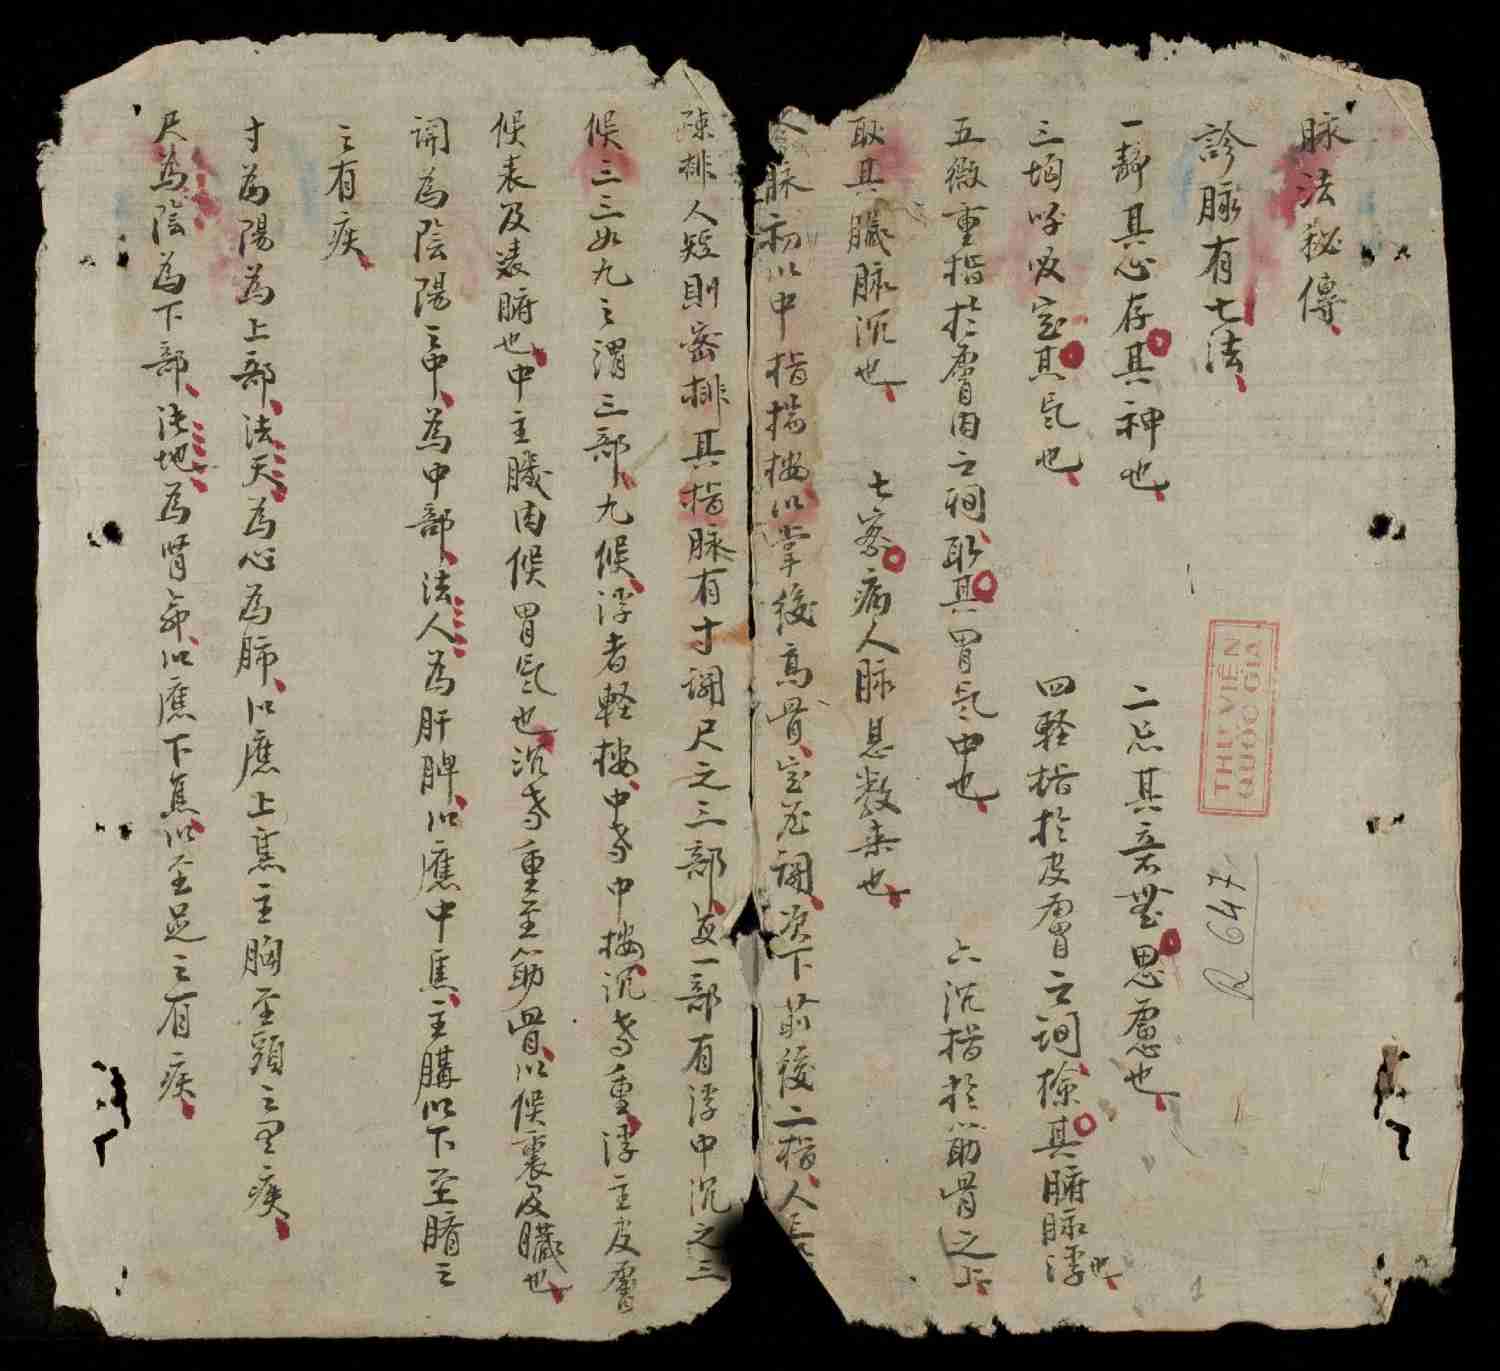 脉法秘傳
診脉有七法
一靜其心存其神也　二忘其意無思慮也
三均呼吸定其氣也　四輕指於皮膚之间探其腑脉浮也
五微重指於膚肉之间取其胃氣中也　六沉指於筋骨之上
取其臟脉沉也　七察病人脉息数来也
脉初以中指揣按以掌後高骨定為関次下前後二指人長
疎排人短則密排其指脉有寸関尺之三部每一部有浮中沉之三
候三三如九之謂三部九候浮者輕按中者中按沉者重浮主皮膚
候表及裱腑也中主臓肉候胃氣也沉者重至筋骨以候裏及臟也
関為陰陽之中為中部法人為肝脾以應中焦主膈以下至臍之
之有疾
寸為陽為上部法天為心為肺以應上焦主胸至頭之有疾
尺為陰為下部法地為腎命以應下焦以至足之有疾
THƯ VIỆN
QUỐC GIA
R 647
1